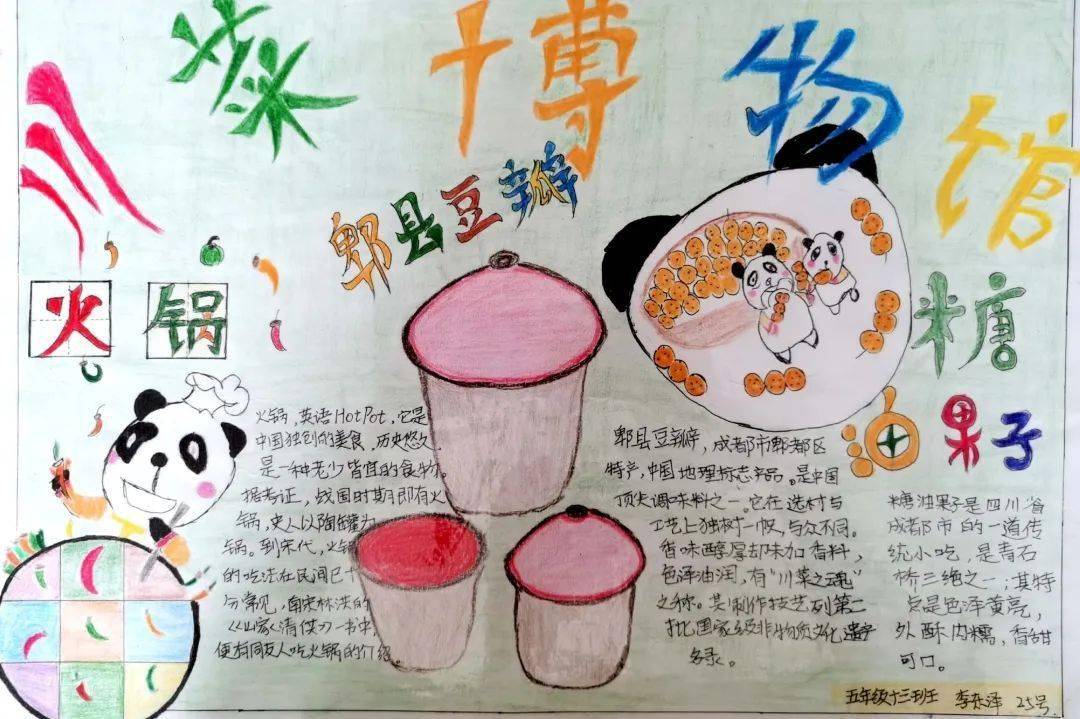 川菜博物馆
郫县豆瓣
火锅
糖
油果子
火锅，英语HotPot，它是
中国独创的美食，历史悠久，
是一种老少皆宜的食物。
据考证，战国时期即有火
锅，史人以陶罐为
锅。到宋代，火锅
的吃法在民间已十
分常见，南宋林洪的
《山家清供》一书中，
便有同友人吃火锅的介绍。
郫县豆瓣，成都市郫都区
特产，中国地理标志产品。是中国
顶尖调味料之一。它在选材与
工艺上独树一帜，与众不同。
香味醇厚却味加香料，
色泽油润，有“川菜之魂”
之称。其制作技艺列第二
批国家级非物质文化遗产
名录。
糖油果子是四川省
成都市的一道传
统小吃，是青石
桥三绝之一；其特
点是色泽黄亮，
外酥内糯，香甜
可口。
五年级十三班 李东泽 25号